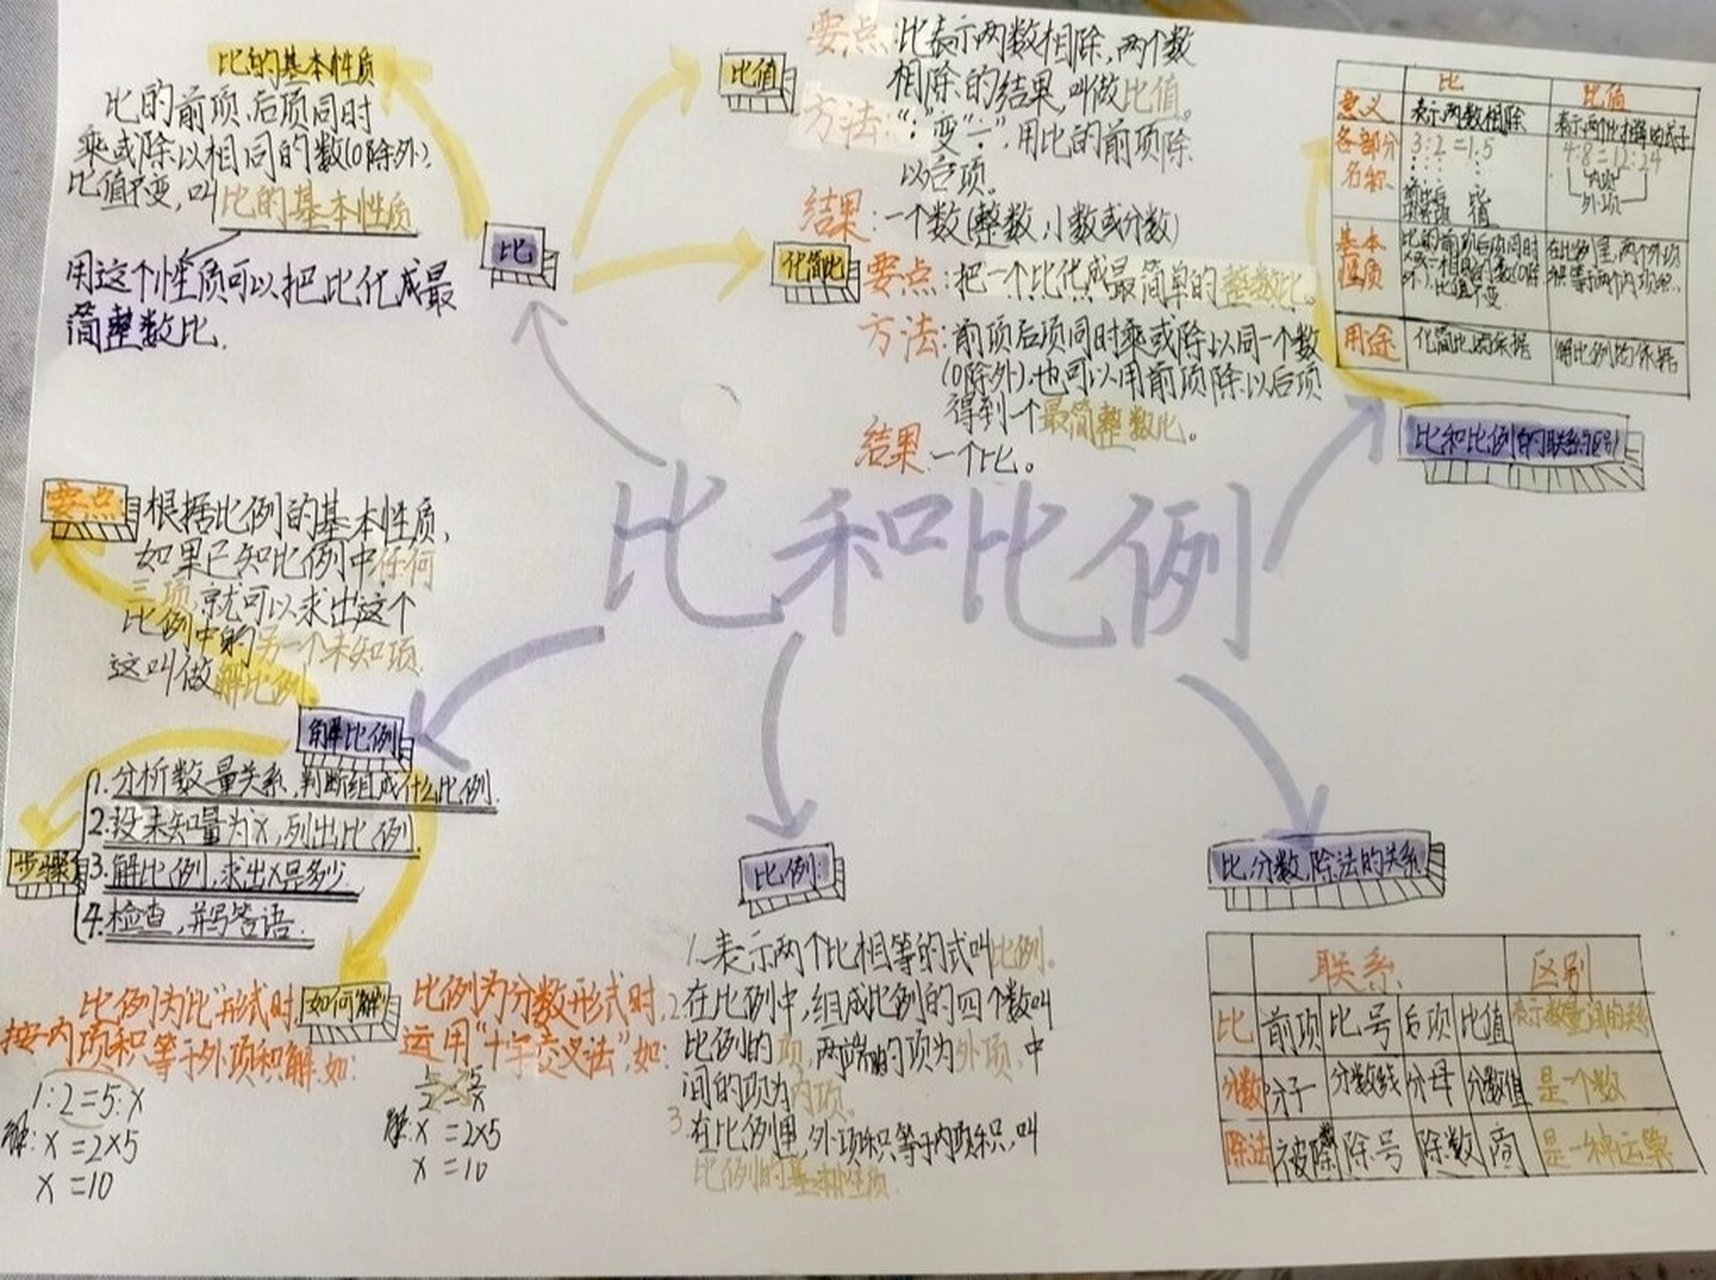 比和比例
比
比的基本性质
比的前项、后项同时
乘或除以相同的数(0除外),
比值不变,叫比的基本性质
用这个性质可以把比化成最
简整数比.
比值
要点:比表示两数相除,两个数
相除的结果,叫做比值。
方法:“:”变“÷”,用比的前项除
以后项。
结果:一个数(整数,小数或分数)
化简比
要点:把一个比化成最简单的整数比。
方法:前项后项同时乘或除以同一个数
(0除外),也可以用前项除以后项
得到一个最简整数比。
结果:一个比。
比和比例的联系、区别
比 比值
意义 表示两数相除 表示两个比相等的式子
各部分 3:2=1.5 4:8=12:24
名称 内项
外项
基本 在比例里,两个外项
性质 积等于两个内项积.
比值不变
用途 化简比的依据 解比例的依据
解比例
要点
根据比例的基本性质,
如果已知比例中任何
三项,就可以求出这个
比例中的另一个未知项.
这叫做解比例
步骤
1.分析数量关系,判断组成什么比例.
2.设未知量为x,列出比例.
3.解比例,求出x是多少.
4.检查,并写答语.
如何“解”
比例为“比”形式时,
按内项积等于外项积解.如:
1:2=5:x
解:x=2×5
x=10
比例为分数形式时,
运用“十字交叉法”如:
1/2=5/x
解:x=2×5
x=10
比例:
1.表示两个比相等的式叫比例。
2.在比例中,组成比例的四个数叫
比例的项,两端的项为外项,中
间的项为内项。
3.在比例里,外项积等于内项积,叫
比例的基本性质.
比,分数,除法的关系
联系 区别
比 前项 比号 后项 比值 表示数量间的关系
分数 分子 分数线 分母 分数值 是一个数
除法 被除数 除号 除数 商 是一种运算